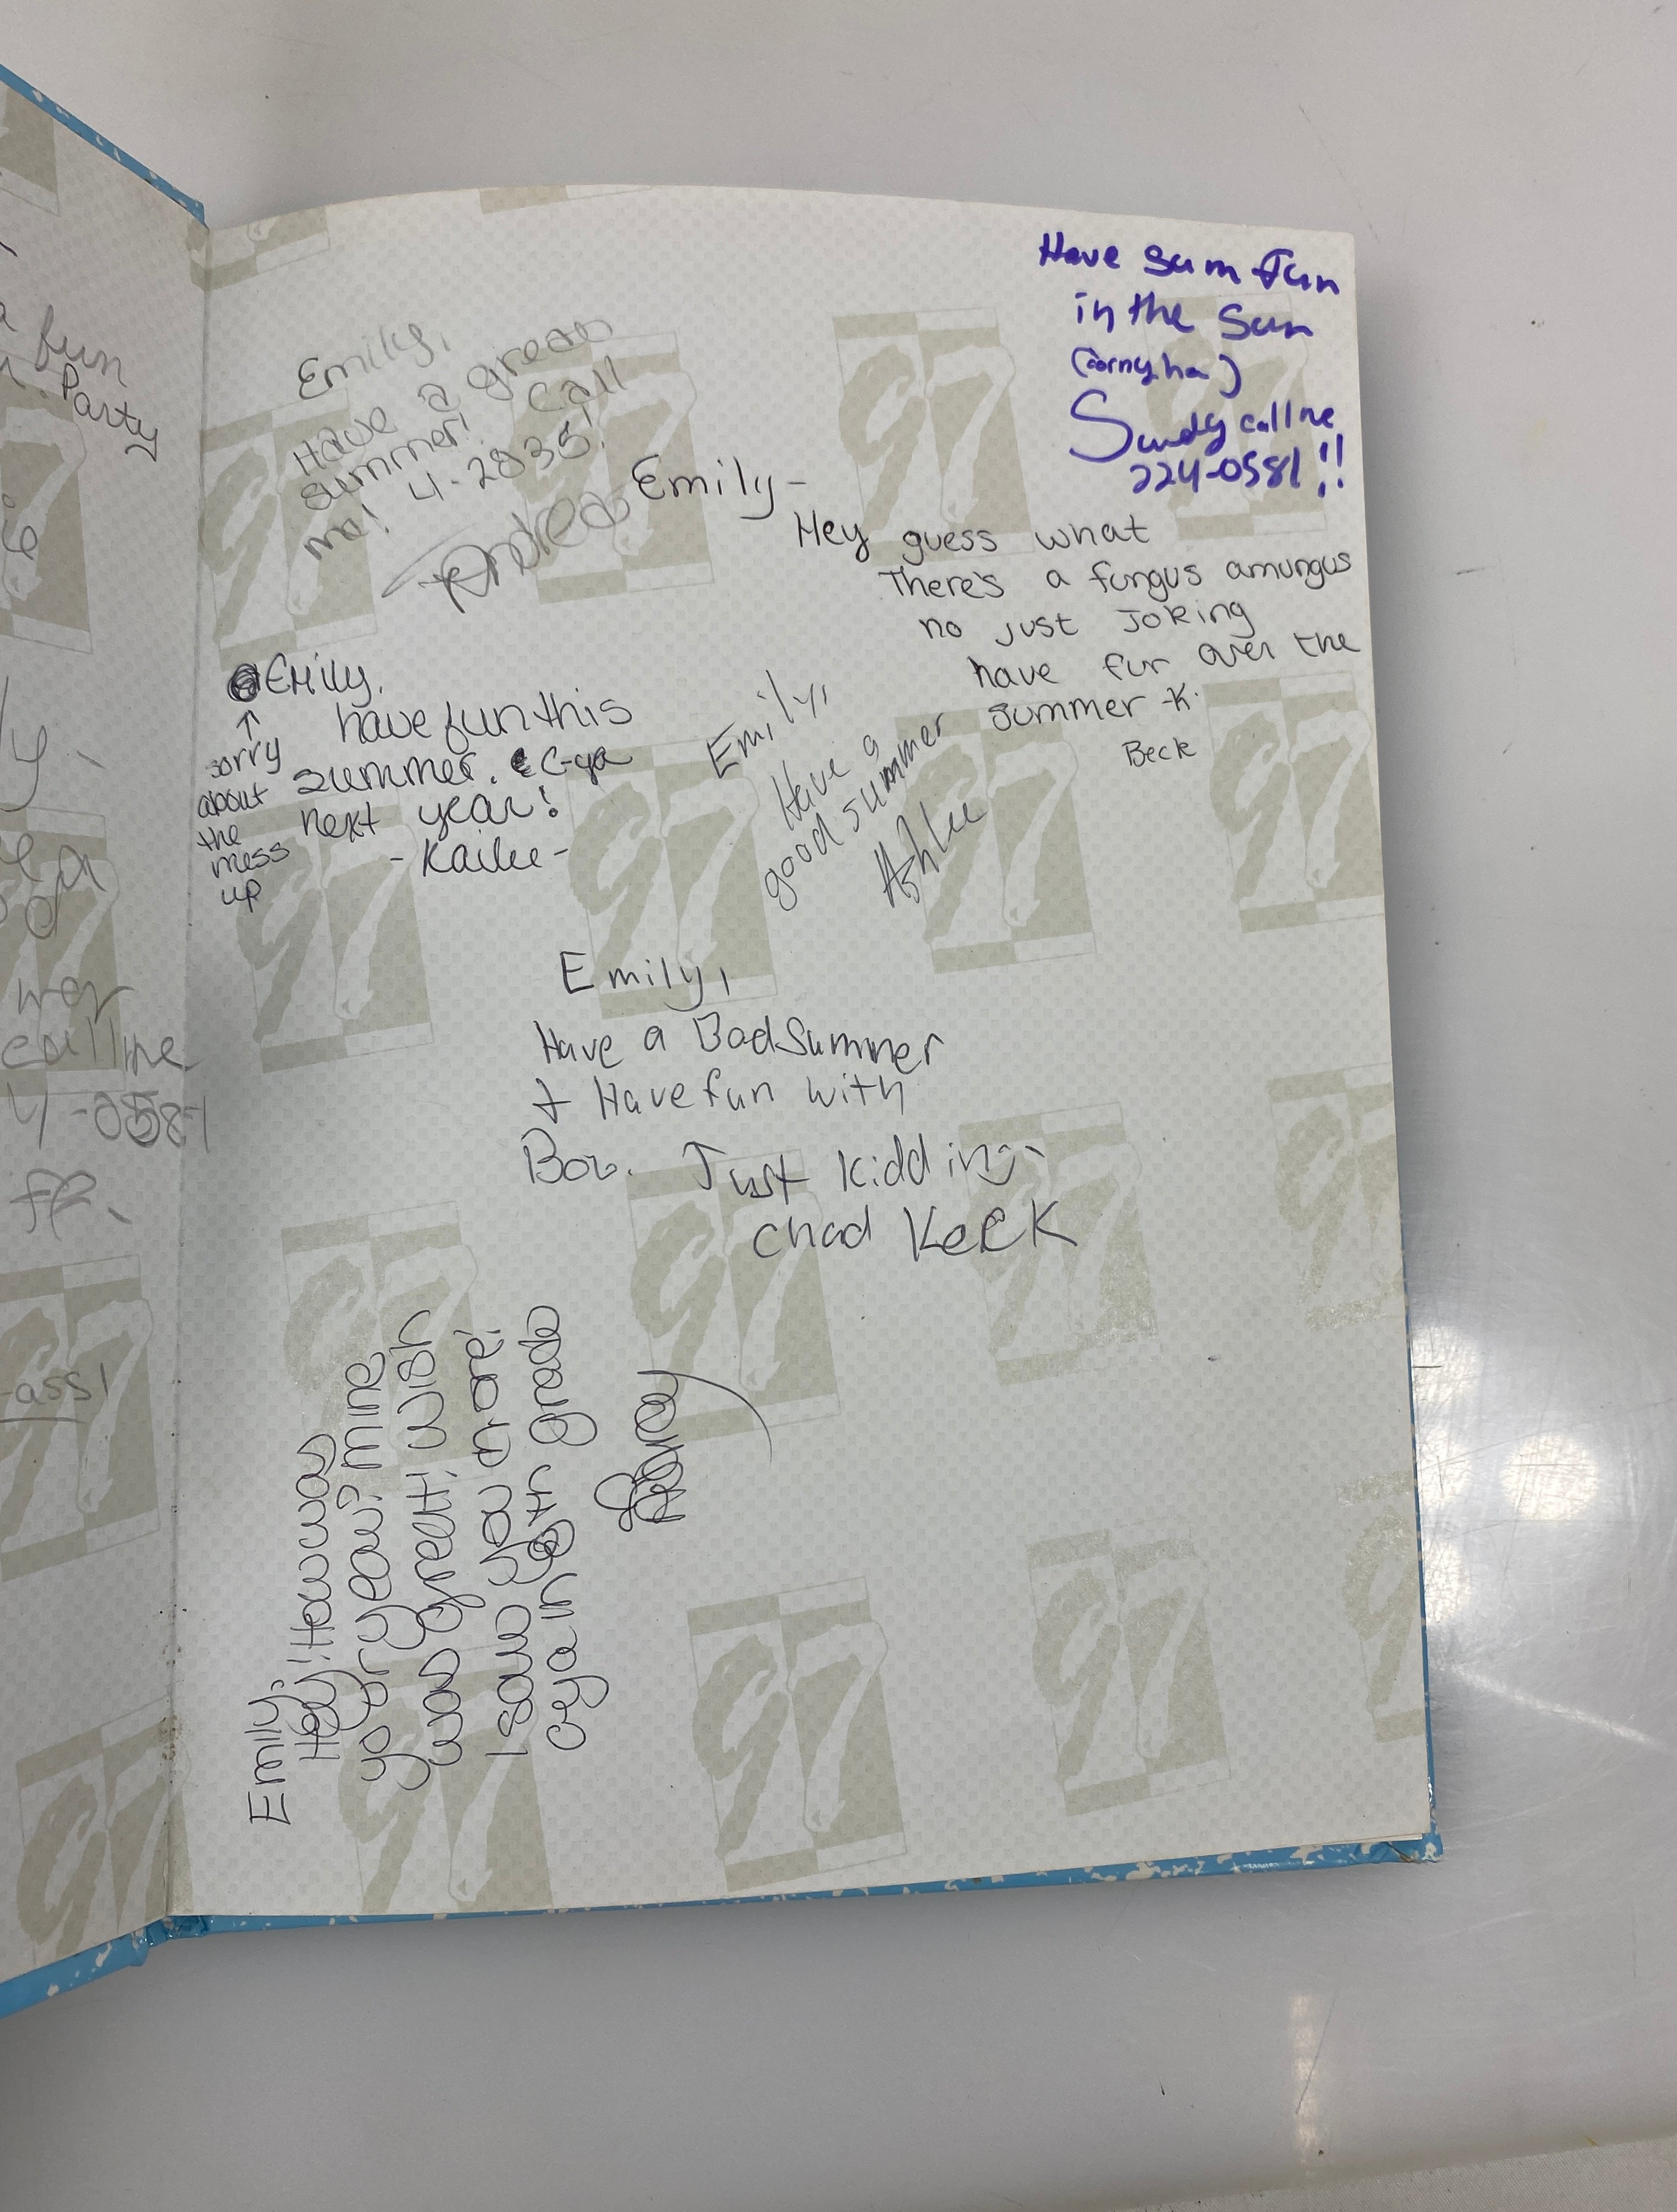 a fun
Party
call me
4-0581
ass!
Emily,
Have a great
summer! Call
me! 4-2835!
Andrea
Have sum Fun
in the Sun
(corny.ha)
Sandy call me
224-0581!!
Emily-
Hey guess what
There's a fungus amungus
no just Joking
have fun over the
summer -K.
Beck
Emily,
have fun this
summer. C-ya
next year!
-Kailee-
↑
sorry
about
the
mess
up
Emily,
Have a
good summer
Ashlee
Emily,
Have a Bad Summer
+ Have fun with
Just Kidding
Chad Keck
Emily,
Hey! How was
your year? mine
was great! wish
I saw you more!
cya in 8th grade
97